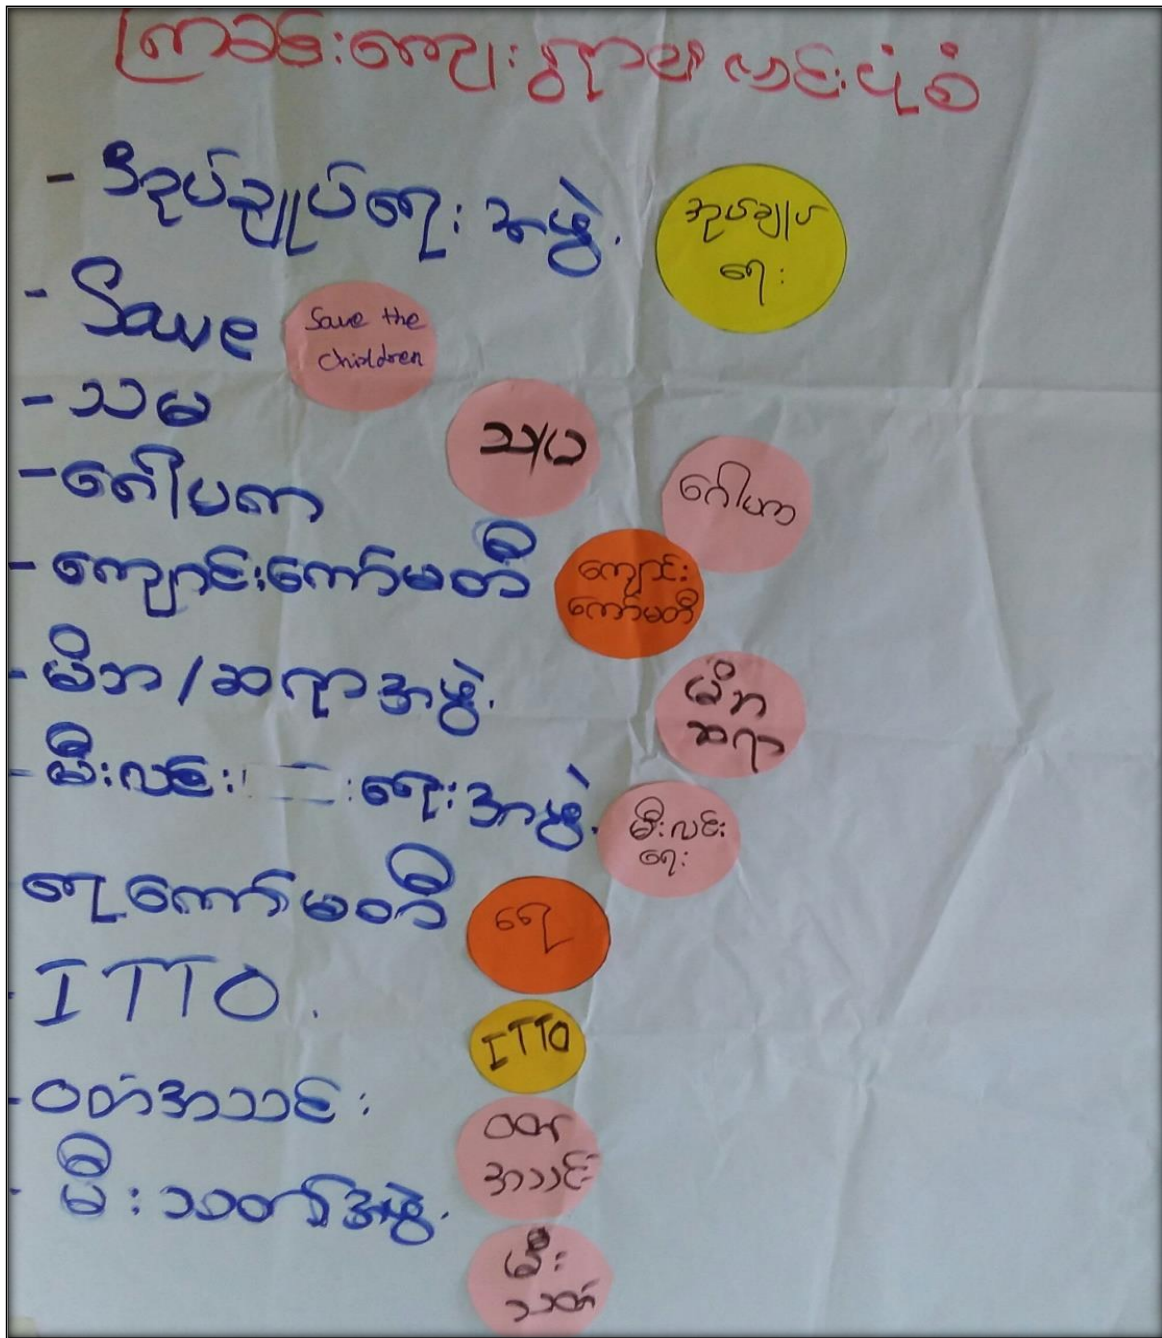 ကြာခင်းကျေးရွာ၏ကွင်းပုံစံ
- အုပ်ချုပ်ရေးအဖွဲ့
အုပ်ချုပ်
ရေး
- Save
Save the
children
- သမ
သမ
- ဂေါပက
ဂေါပက
- ကျောင်းကော်မတီ
ကျောင်း
ကော်မတီ
- မိဘ/ဆရာအဖွဲ့
မိဘ
ဆရာ
- မီးလင်းရေးအဖွဲ့
မီးလင်း
ရေး
ရေကော်မတီ
ရေ
- ITTO
ITTO
- ဝတ်အသင်း
ဝတ်
အသင်း
- မီးသတ်အဖွဲ့
မီး
သတ်